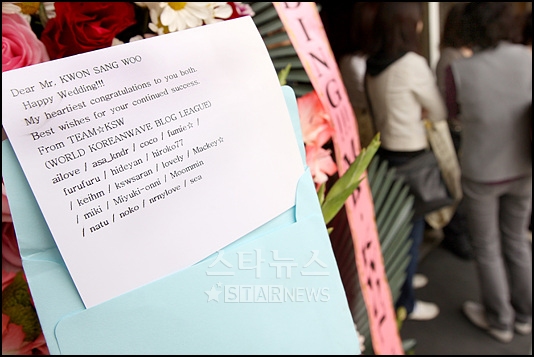 Dear Mr. KWON SANG WOO
Happy Wedding!!!
My heartiest congratulations to you both.
Best wishes for your continued success.
From TEAM☆KSW
(WORLD KOREANWAVE BLOG LEAGUE)
ailove / asa_kndr / coco / fumie☆ /
furufuru / hideyan / hiroko77
/ keihm / kswsaran / lovely / Mackey☆
/ miki / Miyuki-onni / Moommin
/ natu / noko / nrnylove / sea
DING
스타뉴스
★STARNEWS